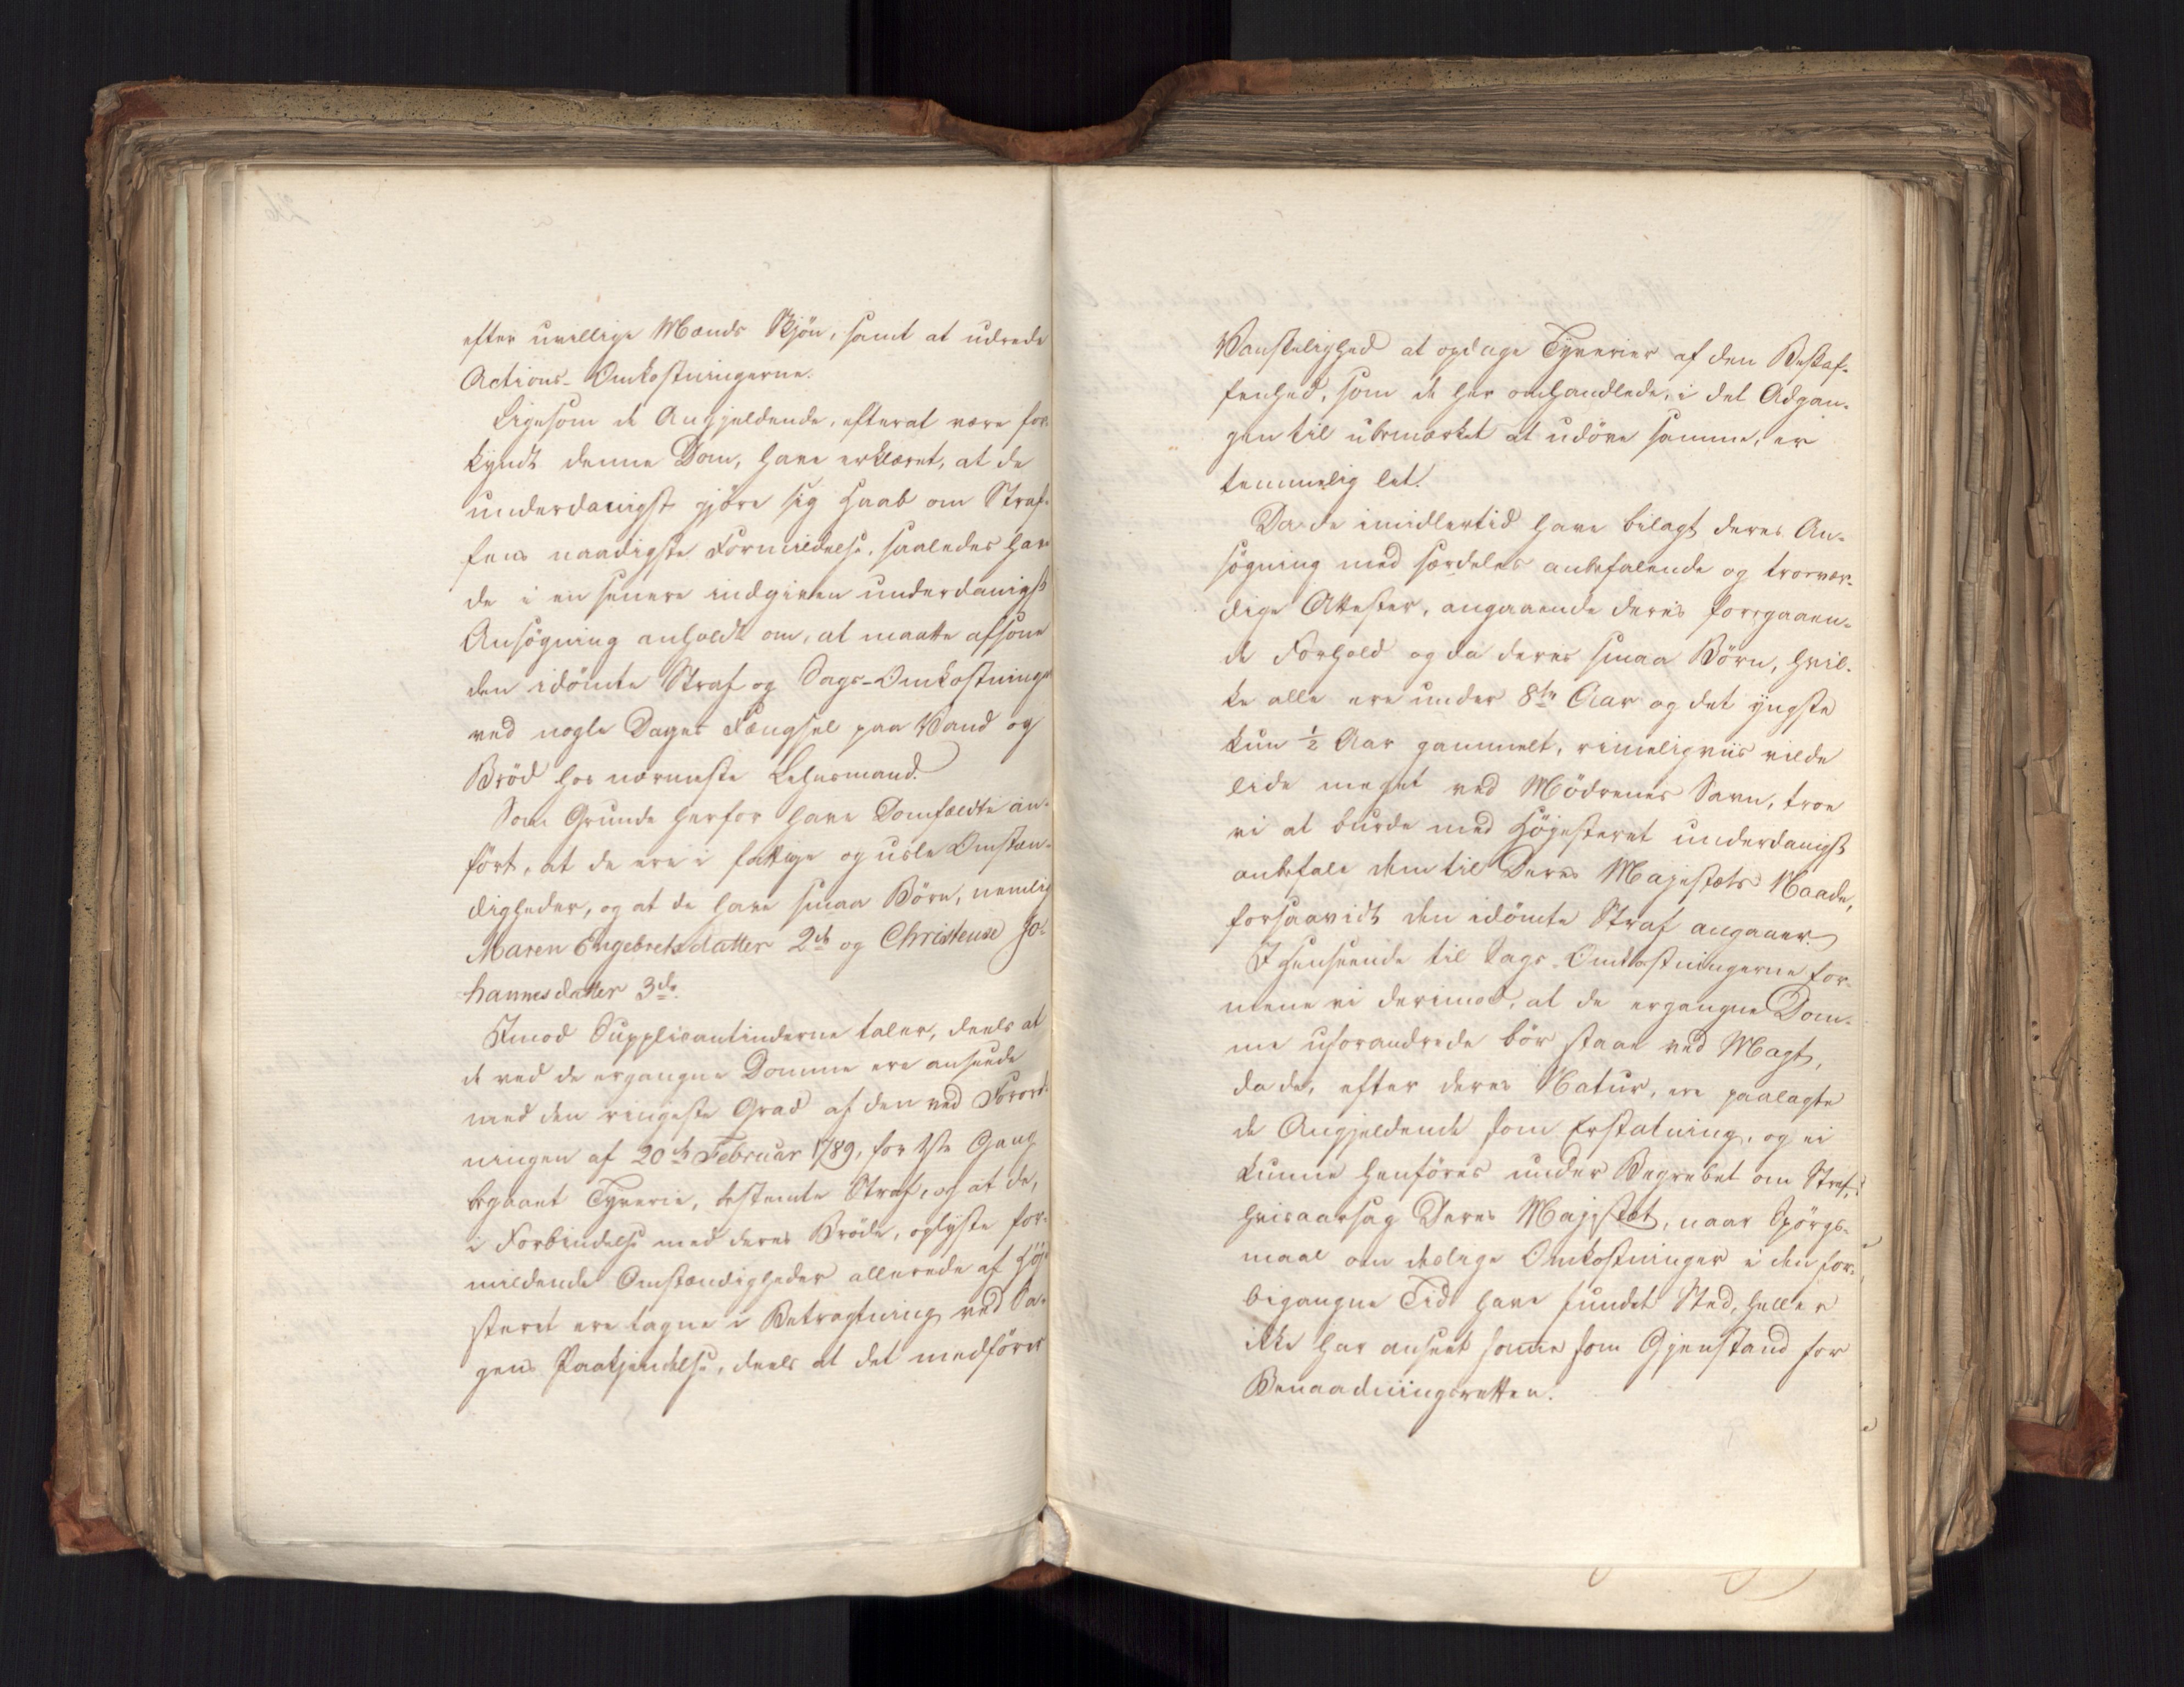 efter uvillige Mænds Skjön, samt at udrede
Actions-Omkostningerne.
Ligesom de Angjeldende, efterat være for-
kyndt denne Dom, have erklæret, at de
underdanigst gjöre sig Haab om Straf-
fens naadigste Formildelse, saaledes have
de i en senere indgiven underdanigst
Ansögning anholdt om, at maatte afsone
den idömte Straf og Sags-Omkostninger
ved nogle Dages Fængsel paa Vand og
Bröd hos nærmeste Lehnsmand.
Som Grunde herfor have Domfældte an-
fört, at de ere i fattige og usle Omstæn-
digheder, og at de have smaa Börn, nemlig
Maren Engebretsdatter 2de og Christense Jo-
hannesdatter 3de.
Imod Supplicantinderne taler, deels at
de ved de ergangne Domme ere anseede
med den ringeste Grad af den ved Forord-
ningen af 20de Februar 1789, for 1ste Gang
begaaet Tyverie, bestemte Straf, og at de,
i Forbindelse med deres Bröde, oplyste for-
mildende Omstændigheder allerede af Höje-
steret ere tagne i Betragtning ved Sa-
gens Paakjendelse, deels at det medförer
Vanskelighed at opdage Tyverier af den Beskaf-
fenhed, som de her omhandlede, i det Adgan-
gen til ubemærket at udöve samme, er
temmelig let.
Da de imidlertid have bilagt deres An-
sögning med særdeles anbefalende og troevær-
dige Attester, angaaende deres foregaaen-
de Forhold og da deres smaa Börn, hvil-
ke alle ere under 8te Aar og det yngste
kun ½ Aar gammelt, rimeligviis vilde
lide meget ved Mödrenes Savn, troe
vi at burde med Höjesteret underdanigst
anbefale dem til Deres Majestæts Naade,
forsaavidt den idömte Straf angaaer.
I Henseende til Sags-Omkostningerne for-
mene vi derimod, at de ergangne Dom-
me uforandrede bör staae ved Magt,
da de, efter deres Natur, ere paalagte
de Angjeldende som Erstatning, og ei
kunne henföres under Begrebet om Straf,
hvisaarsag Deres Majestæt, naar Spörgs-
maal om deslige Omkostninger i den for-
bigangne Tid have fundet Sted, heller
ikke har anseet samme som Gjenstand for
Benaadningsretten.